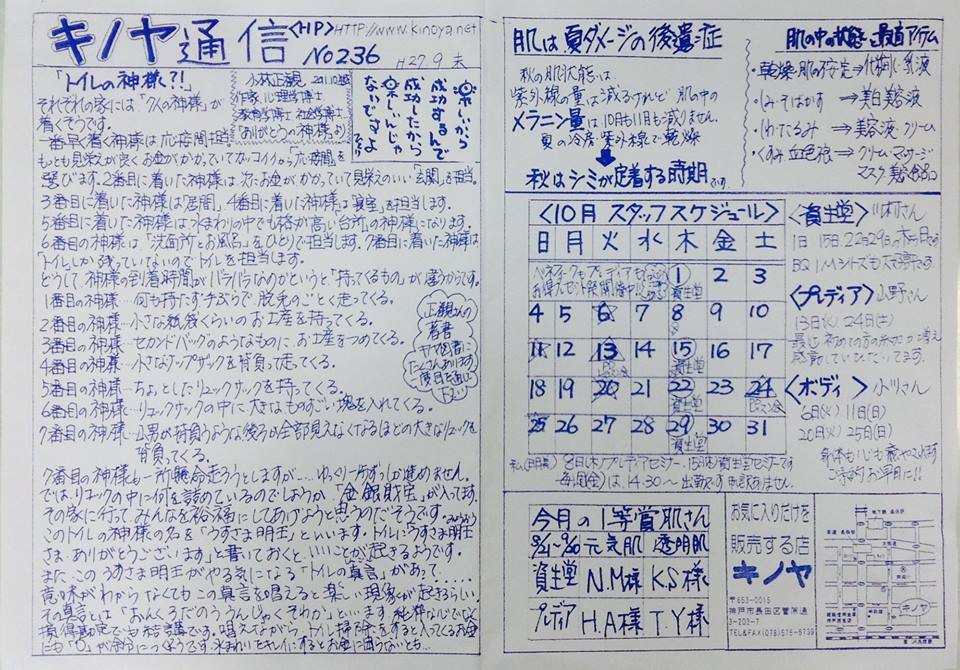 キノヤ通信
<HP> HTTP://www.kinoya.net
No236
H27.9 末
「トイレの神様?!」
それぞれの家には「7人の神様」が
着くそうです。
小林正観 2011.10没
作家 心理学博士
教育学博士 社会学博士
「ありがとうの神様」より
楽しいから
成功するんで
成功したから
楽しいんじゃ
ないですよ
一番早く着く神様は応接間担当。
もっとも見栄えが良くお金がかかっていてカッコイイから「応接間」を
選びます。2番目に着いた神様は次にお金がかかっていて見栄えのいい「玄関」を担当。
3番目に着いた神様は「居間」4番目に着いた神様は「寝室」を担当します。
5番目に着いた神様は水まわりの中でも格が高い台所の神様になります。
6番目の神様は「洗面所とお風呂」をひとりで担当します。7番目に着いた神様は
「トイレ」しか残っていないのでトイレを担当します。
どうして神様の到着時間がバラバラなのかというと「持ってくるもの」が違うからです。
1番目の神様…何も持たず手ぶらで脱兎のごとく走ってくる。
2番目の神様…小さな紙袋くらいのお土産を持ってくる。
3番目の神様…セカンドバックのようなものにお土産をつめてくる。
4番目の神様…小さなナップザックを背負って走ってくる。
5番目の神様…ちょっとしたリュックサックを持ってくる。
6番目の神様…リュックサックの中に大きなものすごい塊を入れてくる。
7番目の神様…山男が背負うような後ろが全部見えなくなるほどの大きなリュックを
背負ってくる。
正観さんの
著書
キノヤ図書に
たくさんあります
7番目の神様も一所懸命走ろうとしますが……ゆっくり一歩ずつしか進めません。
では、リュックの中に何を詰めているのでしょうか。「金銀財宝」が入ってます。
その家に行ってみんなを裕福にしてあげようと思うのだそうです。
このトイレの神様の名を「うすさま明王」といいます。トイレに「うすさま明王
さま、ありがとうございます」と書いておくと、いいことが起きるようです。
また、このうすさま明王がやる気になる「トイレの真言」があって……
意味がわからなくてもこの真言を唱えると楽しい現象が起きるらしい。
その真言とは「おんくろだのううんじゃくそわか」といいます
損得勘定でも
唱えながらトイレ掃除をすると入ってくるお金
にも「0」が
肌は夏ダメージの後遺症
秋の肌状態は、
紫外線の量は減るけれど 肌の中の
メラニン量は10月も11月も減りません。
夏の冷房 紫外線で乾燥
秋はシミが定着する時期です。
肌の中の状態と最適アイテム
・乾燥・肌の不安定⇒化粧水・乳液
・しみ・そばかす ⇒美白美容液
・しわ・たるみ ⇒美容液 クリーム
・くすみ 血色 ⇒クリーム・マッサージ
マスク 美容食品
<10月 スタッフスケジュール>
日 月 火 水 木 金 土
1 2 3
資生堂
4 5 6 7 8 9 10
11 12 13 14 15 16 17
資生堂
18 19 20 21 22 23 24
資生堂
25 26 27 28 29 30 31
資生堂
8日(木)プレディアセミナー、15日(木)資生堂セミナーです
毎週(金)は、14:30〜出勤です
<資生堂> 川村さん
1日 15日、22日29日の木曜日です
<プレディア> 山野さん
13日(火) 24日(土)
<ボディ> 小川さん
6日(火) 11日(日)
20日(火) 25日(日)
身体も心も癒やされます
ご予約お早目に!!
今月の1等賞肌さん
8/21〜9/20 元気肌 透明肌
資生堂 N.M様 K.S様
プレディア H.A様 T.Y様
お気に入りだけを
販売する店
キノヤ
〒653-0015
神戸市長田区菅原通
3-203-7
TEL&FAX(078)576-6739
キノヤ